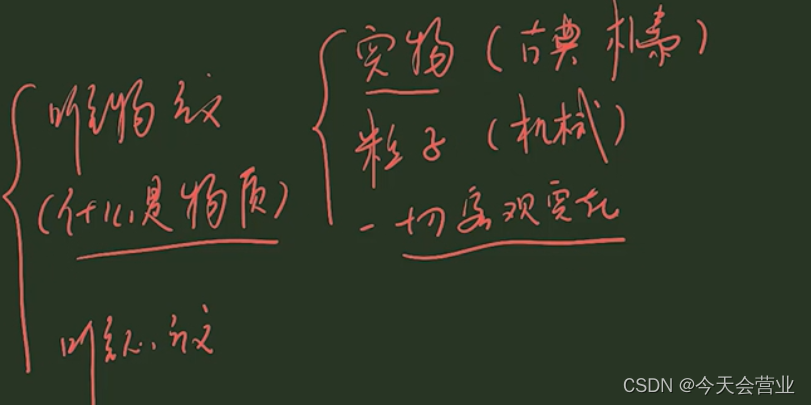 唯物论
(什么是物质)
唯心论
实物(古典 朴素)
粒子(机械)
一切客观实在
CSDN @今天会营业